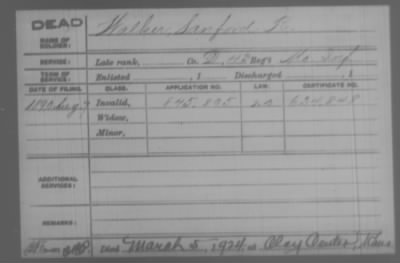 DEAD
NAME OF SOLDIER: Walker, Sanford R.
SERVICE: Late rank, Co. D, 42 Reg't Mo. Inf
TERM OF SERVICE: Enlisted , 1 Discharged , 1
DATE OF FILING. CLASS. APPLICATION NO. LAW. CERTIFICATE NO.
1890 Aug. 9 Invalid, 845.805 624.848
Widow,
Minor,
ADDITIONAL SERVICES:
REMARKS:
Died March 5, 1924, at Clay Center, Kans